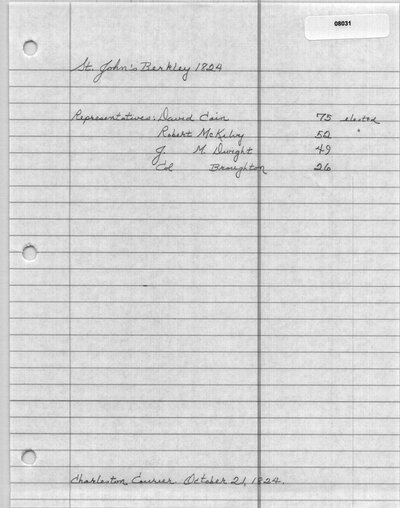 08031
St. John's Berkley 1824
Representatives: David Cain 75 elected
Robert McKelvy 52
J. M. Dwight 49
Col Broughton 26
Charleston Courier. October 21, 1824.